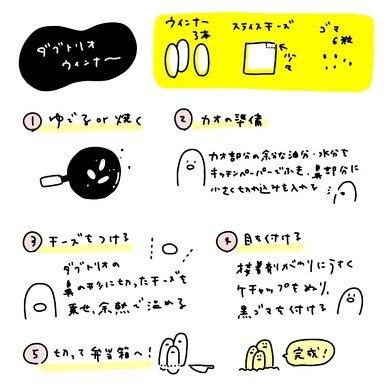 ダブトリオ
ウィンナー
ウィンナー
3本
スライスチーズ
少々
ゴマ
6粒
① ゆでるor焼く
② カオの準備
カオ部分の余分な油分・水分を
キッチンペーパーでふき、鼻部分に
小さく切り込みを入れる
③ チーズをつける
ダブトリオの
鼻の形に切ったチーズを
乗せ、余熱で温める
④ 目を付ける
接着剤がわりにうすく
ケチャップをぬり、
黒ゴマを付ける
⑤ 切って弁当箱へ!
完成!